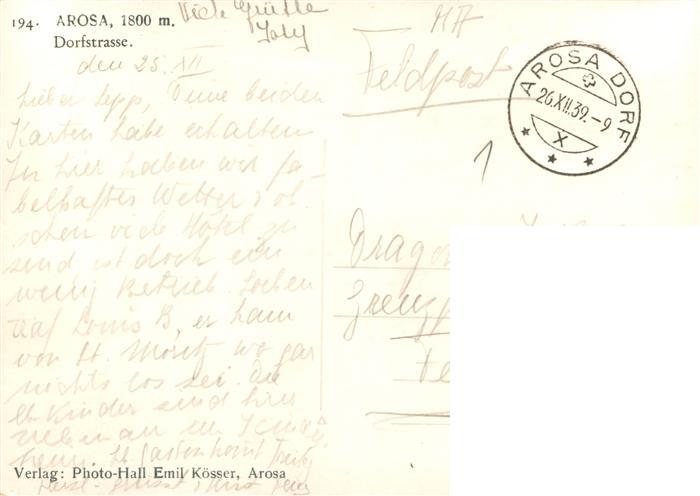 194. AROSA, 1800 m.
Dorfstrasse.
Viele Grüsse
den 25. XII
Lieber Sepp, Deine beiden
Karten habe erhalten
hier haben wir fa-
belhaftes Wetter & ob-
schon viele Hotel zu
sind ist doch ein
wenig Betrieb. Soeben
traf Louis B, er kam
von St. Moritz wo gar
nichts los sei. Die
Kinder sind hier
nebenan im
Verlag: Photo-Hall Emil Kösser, Arosa
Feldpost
AROSA DORF
26.XII.39.-9
X
1
Drago
Grenz